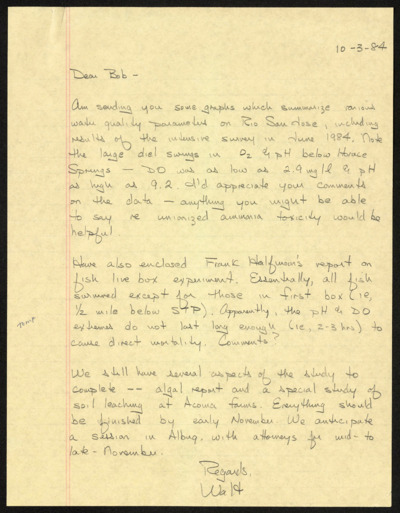 10-3-84
Dear Bob -
Am sending you some graphs which summarize various
water quality parameters on Rio San Jose, including
results of the intensive survey in June 1984. Note
the large diel swings in O2 & pH below Horace
Springs — DO was as low as 2.9 mg/l & pH
as high as 9.2. I'd appreciate your comments
on the data — anything you might be able
to say re unionized ammonia toxicity would be
helpful.
Have also enclosed Frank Halfmoon's report on
fish live box experiment. Essentially, all fish
survived except for those in first box (ie,
1/2 mile below STP). Apparently, the pH & DO
extremes do not last long enough (ie, 2-3 hrs) to
cause direct mortality. Comments?
We still have several aspects of the study to
complete -- algal report and a special study of
soil leaching at Acoma farms. Everything should
be finished by early November. We anticipate
a session in Albuq. with attorneys for mid- to
late- November.
Regards,
Walt